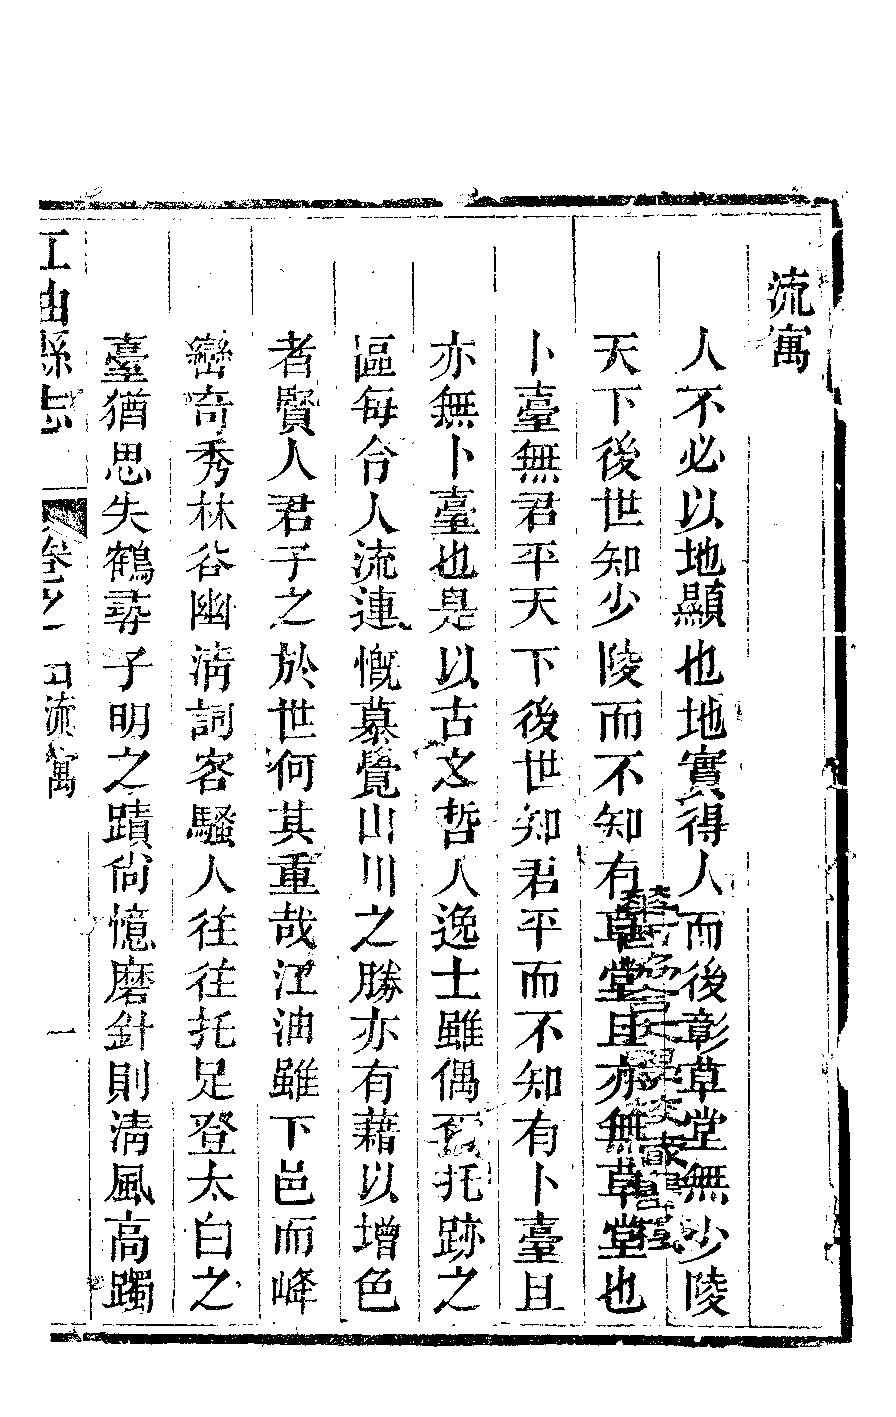 流寓
人不必以地顯也地實得人而後彰草堂無少陵
天下後世知少陵而不知有草堂且亦無草堂也
卜臺無君平天下後世知君平而不知有卜臺且
亦無卜臺也是以古文哲人逸士雖偶爾托跡之
區每令人流連慨慕覺山川之勝亦有藉以增色
者賢人君子之於世何其重哉江油雖下邑而峰
巒奇秀林谷幽清詞客騷人往往托足登太白之
臺猶思失鶴尋子明之蹟尙憶磨針則清風高躅
江油縣志 卷之 流寓 一